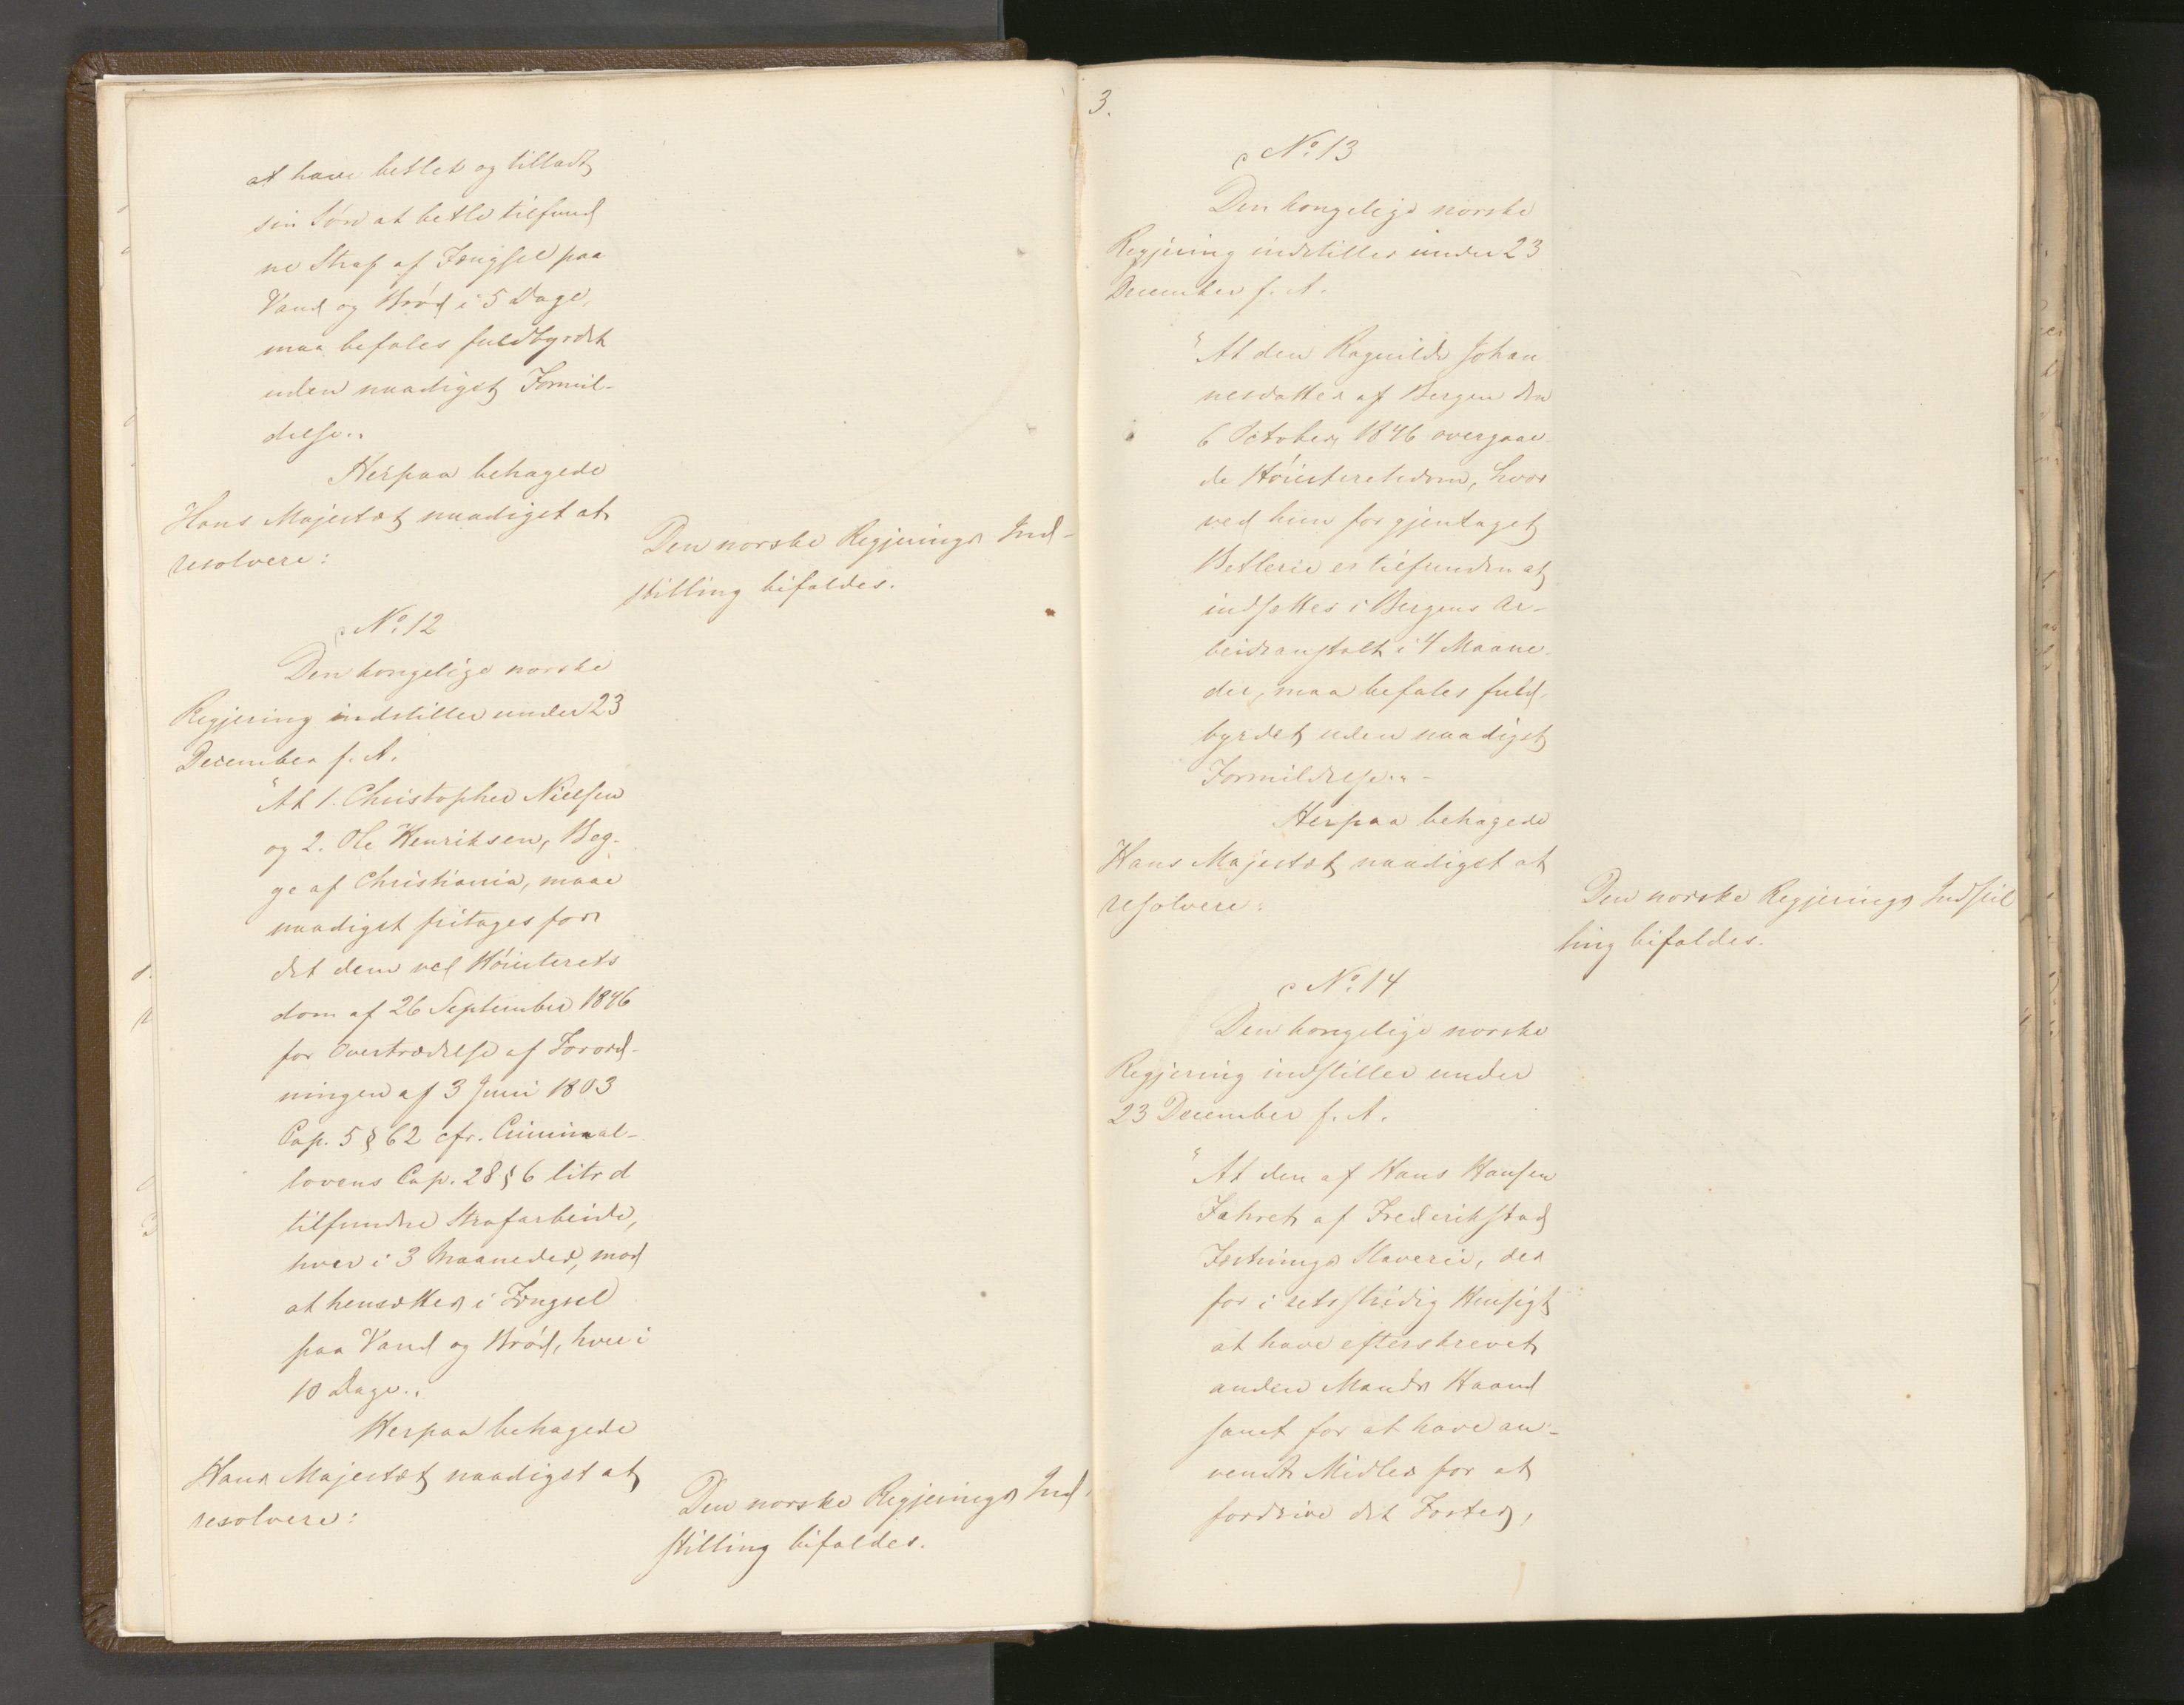 at have betlet og tilladt
sin Søn at betle tilfund
ne Straf af Fængsel paa
Vand og Brød i 5 Dage,
maa befales fuldbyrdet
uden naadigst Formil-
delse."
Herpaa behagede
Hans Majestæt naadigst at
resolvere:
Den norske Regjerings Ind-
stilling bifaldes.
No. 12
Den kongelige norske
Regjering indstiller under 23
December f. A.
"At 1. Christopher Nielsen
og 2. Ole Henriksen, Beg-
ge af Christiania, maae
naadigst fritages for
det dem ved Høiesterets
dom af 26 September 1846
for Overtrædelse af Forord-
ningen af 3 Juni 1803
Cap. 5 § 62 cfr. Criminal-
lovens Cap. 28 § 6 litr d
tilfundne Strafarbeide,
hver i 3 Maaneder, mod
at hensættes i Fængsel
paa Vand og Brød, hver i
10 Dage."
Herpaa behagede
Hans Majestæt naadigst at
resolvere:
Den norske Regjerings Ind-
stilling bifaldes.
3.
No. 13
Den kongelige norske
Regjering indstiller under 23
December f. A.
"At den Ragnilde Johan
nesdatter af Bergen den
6 October 1846 overgaae
de Høiesteretsdom, hvor
ved hun for gjentaget
Betlerie er tilfunden at
indsættes i Bergens Ar-
beidsanstalt i 4 Maane-
der, maa befales fuld-
byrdet uden naadigst
Formildelse." -
Herpaa behagede
Hans Majestæt naadigst at
resolvere:
Den norske Regjerings Indstil
ling bifaldes.
No. 14
Den kongelige norske
Regjering indstiller under
23 December f. A.
"At den af Hans Hansen
Fahret af Frederikstad
Fæstnings Slaverie, der
for i retsstridig Hensigt
at have efterskrevet
anden Mands Haand
samt for at have an-
vendt Midler for at
fordrive det Foster,